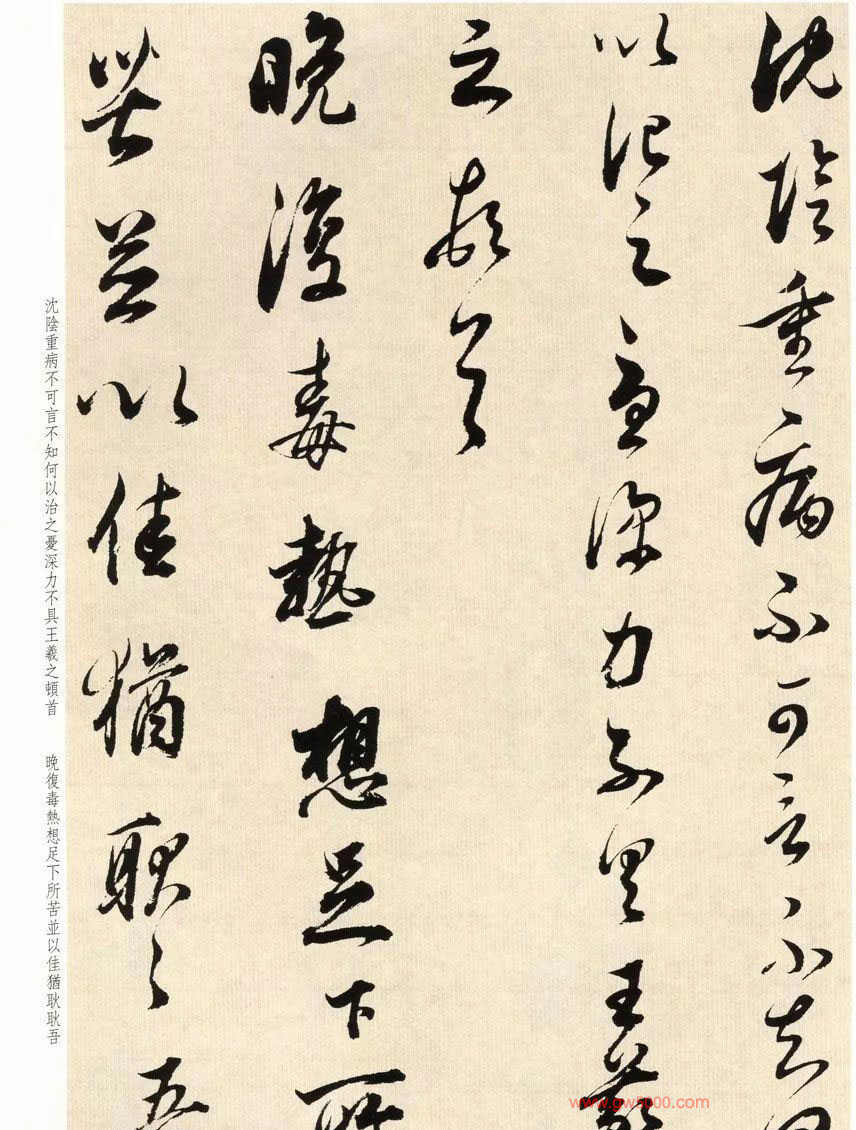 沈陰重病不可言不知何
以治之憂深力不具王羲
之頓首
晚復毒熱想足下所
苦並以佳猶耿〻吾
沈陰重病不可言不知何以治之憂深力不具王羲之頓首
晚復毒熱想足下所苦並以佳猶耿耿吾
www.gw5000.com